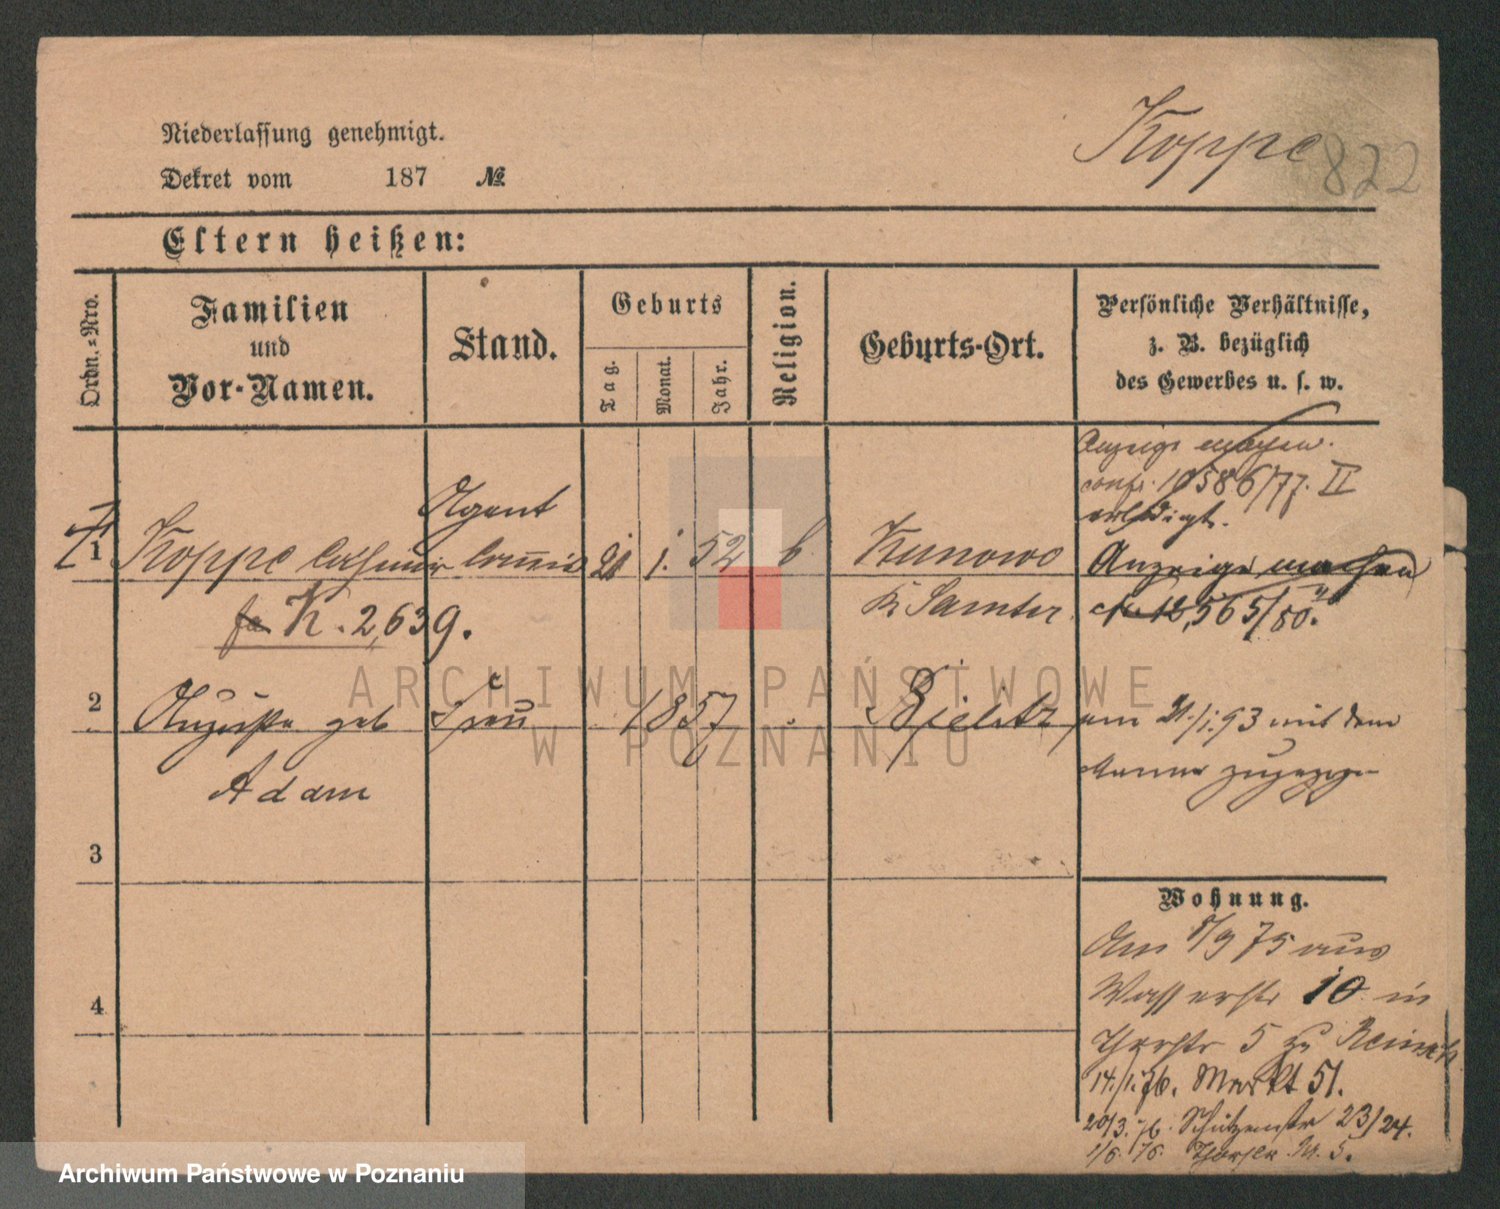 Koppe 822
Niederlassung genehmigt.
Dekret vom 187 №
Eltern heißen:
Ordn.-Nro.
Familien
und
Vor-Namen.
Stand.
Geburts
Tag.
Monat.
Jahr.
Religion.
Geburts-Ort.
Persönliche Verhältnisse,
z. B. bezüglich
des Gewerbes u. s. w.
Anzeige machen.
conf. 10586/77. II
erledigt.
Agent
1 Koppe Casimir 21 1. 52 Kunowo
Anzeige machen
K. 2,639.
Kr Samter
18,565/80.
2 Auguste geb Frau 1857 Bielitz
am 21./1.93 mit dem
Manne zugezogen
Adam
3
Wohnung.
Am 8/9 75 aus
Wasserstr 10 in
4
Thorstr 5 zu
14./1.76. Markt 51.
20/3.76. Schützenstr 23/24.
1/6.76. Thorstr. 5.
ARCHIWUM PAŃSTWOWE
W POZNANIU
Archiwum Państwowe w Poznaniu